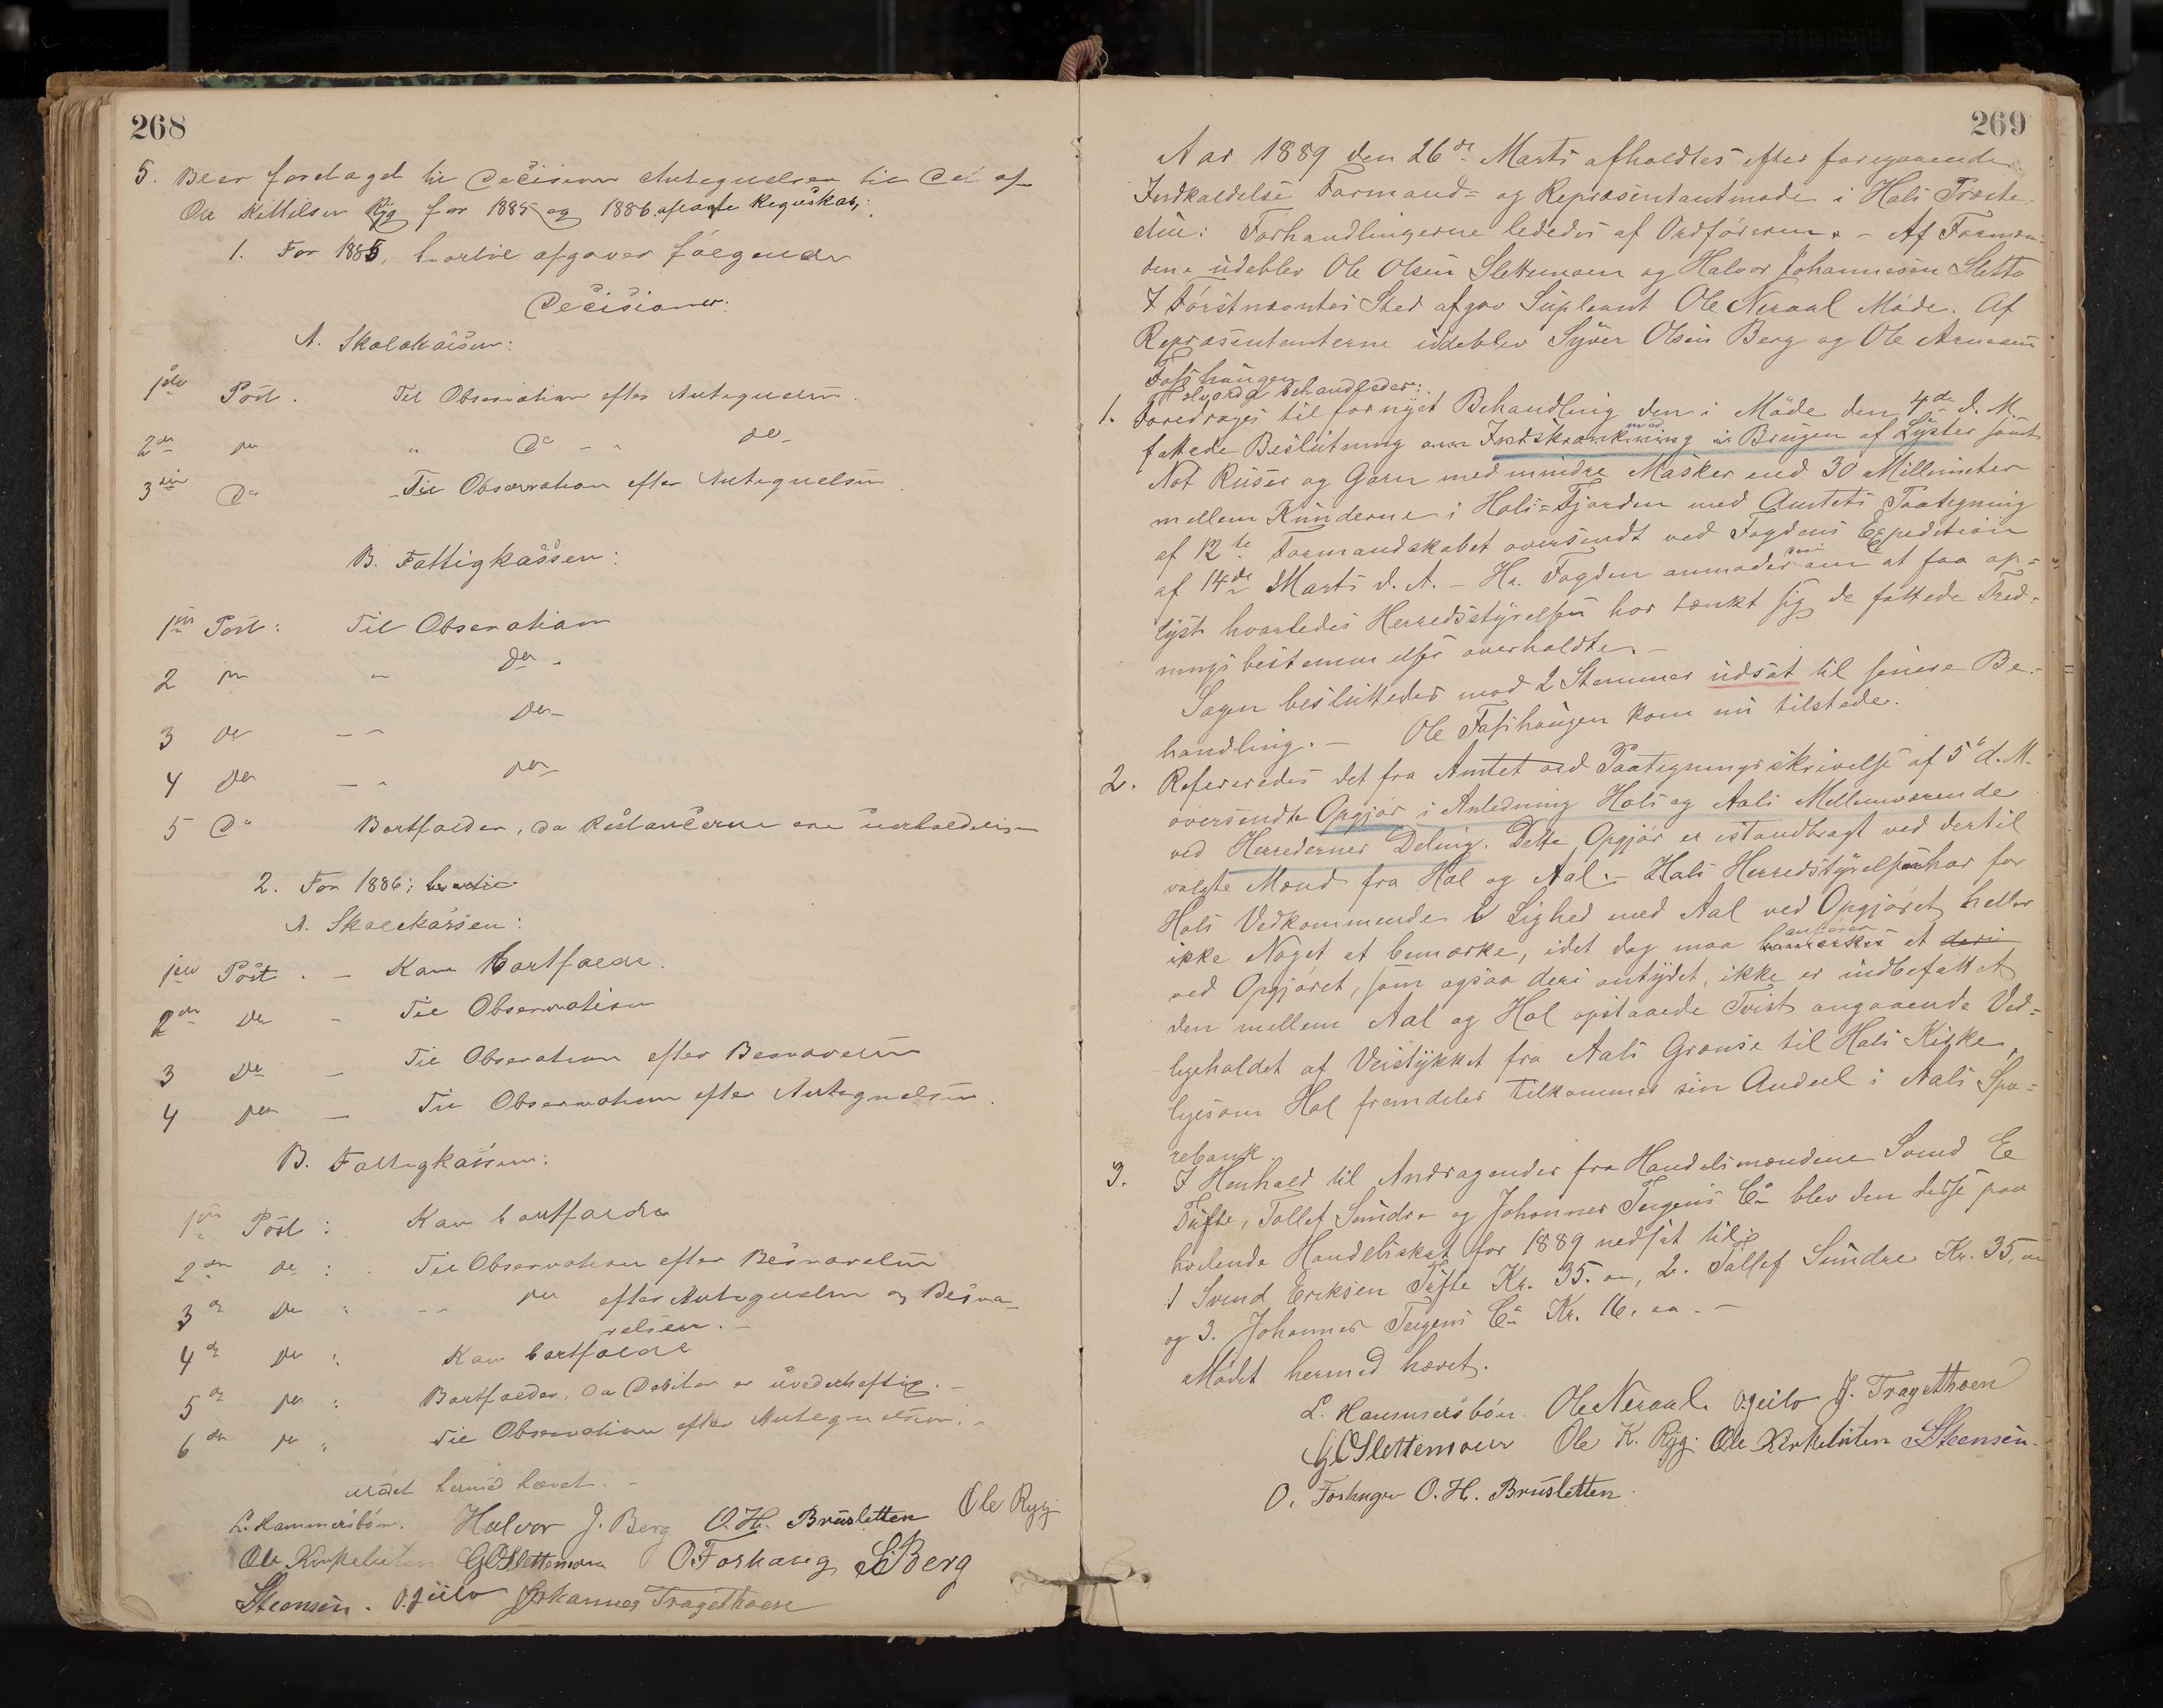 268
5. Blev foretaget til Decision Antegnelser til det af
Ole Kittilsen Ryg for 1885 og 1886 aflagte Regnskab,:
1. For 1885, hvortil afgaves følgende
Decisioner:
A. Skolekassen:
1ste Post. Til Observation efter Antegnelsen.
2den do " Do - " do -
3die Do - Til Observation efter Antegnelsen.
B. Fattigkassen:
1ste Post: Til Observation
2 do " do -
3 do - " do -
4 do - " do -
5 Do Bortfalder, da Restancerne ere uerholdelige
2. For 1886; hvortil
A. Skolekassen:
1ste Post. - Kan bortfalde.
2den do - Til Observation
3 do - Til Observation efter Besvarelsen
4 do - Til Observation efter Antegnelsen.
B. Fattigkassen:
1ste Post: Kan bortfalde
2den do: Til Observation efter Besvarelsen
3de do " - - do efter Antegnelsen og Besva-
relsen. -
4de do " Kan bortfalde
5te do " Bortfalder, da Debitor er uvederheftig. -
6te do " Til Observation efter Antegnelsen. -
Mødet hermed hævet. -
L. Hammersbøn. Halvor J. Berg O. H. Brusletten Ole Ryg.
Ole Kirkeluten G O Slettemoen O Foshaug S Berg
Steensen. O. Jeilo Johannes Tragethoen
269
Aar 1889 den 26de Marts afholdtes efter foregaaende
Indkaldelse Formand- og Repræsentantmøde i Hols Præste-
stue: Forhandlingerne lededes af Ordføreren. - Af Formæn-
dene udeblev Ole Olsen Slettemoen og Halvor Johannesen Sletto
I Førstnævntes Sted afgav Supleant Ole Neraal Møde. Af
Repræsentanterne udeblev Syver Olsen Berg og Ole Arnesen
Foshaugen
Følgende behandledes:
1. Foredroges til fornyet Behandling den i Møde den 4de d. M.
fattede Beslutning om Indskrænkning i Brugen af Lyster samt
Not Ruser og Garn med mindre Masker end 30 Millimeter
mellem Knuderne i Hols-Fjorden med Amtets Paategning
af 12te Formandskabet oversendt ved Fogdens Expedition
af 14de Marts d. A. - Hr. Fogden anmoder om at faa op-
lyst hvorledes Herredsstyrelsen har tænkt sig de fattede Fred-
ningsbestemmelser overholdte. -
Sagen besluttedes mod 2 Stemmer udsat til senere Be-
handling. - Ole Foshaugen kom nu tilstede.
2. Refereredes det fra Amtet ved Paategningsskrivelse af 5te d. M.
oversendte Opgjør i Anledning Hols og Aals Mellemværende
ved Herredernes Deling. Dette Opgjør er istandbragt ved dertil
valgte Mænd fra Hol og Aal. - Hols Herredsstyrelse har for
Hols Vedkommende i Lighed med Aal ved Opgjøret heller
ikke Noget at bemærke, idet dog maa anføres at
ved Opgjøret, som ogsaa deri antydet, ikke er indbefattet
den mellem Aal og Hol opstaaede Tvist angaaende Ved-
ligeholdet af Veistykket fra Aals Grænse til Hols Kirke,
ligesom Hol fremdeles tilkommer sin Andeel i Aals Spa-
rebank.
3. I Henhold til Andragender fra Handelsmændene Svend E
Tufte, Tollef Sundre og Johannes Tugens Co blev den disse paa
hvilende Handelsskat for 1889 nedsat til:
1 Svend Eriksen Tufte Kr. 35. oo, 2. Tollef Sundre Kr. 35, oo
og 3. Johannes Tugens Co Kr. 16. oo. -
Mødet hermed hævet.
L. Hammersbøn. Ole Neraal. O. Jeilo J. Tragethoen
G O Slettemoen Ole K. Ryg. Ole Kirkeluten Steensen.
O. Foshaugen O. H. Brusletten.